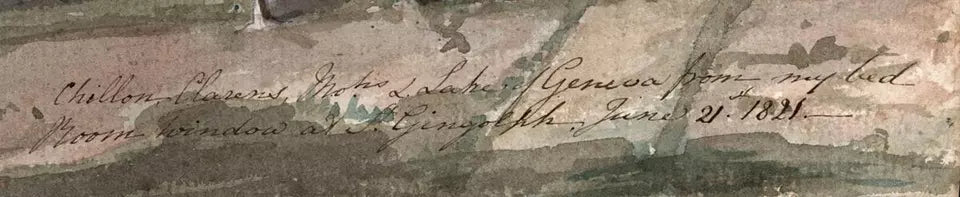 Chillon, Clarens, Mots & Lake of Geneva from my bed
Room Window at St. Gingolph. June 21st. 1821.—